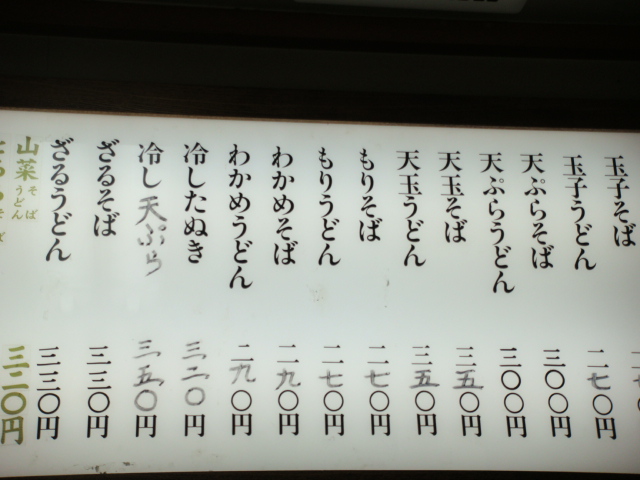 玉子そば
玉子うどん 二七〇円
天ぷらそば 三〇〇円
天ぷらうどん 三〇〇円
天玉そば 三五〇円
天玉うどん 三五〇円
もりそば 二七〇円
もりうどん 二七〇円
わかめそば 二九〇円
わかめうどん 二九〇円
冷したぬき 三二〇円
冷し天ぷら 三五〇円
ざるそば 三三〇円
ざるうどん 三三〇円
山菜そばうどん 三二〇円